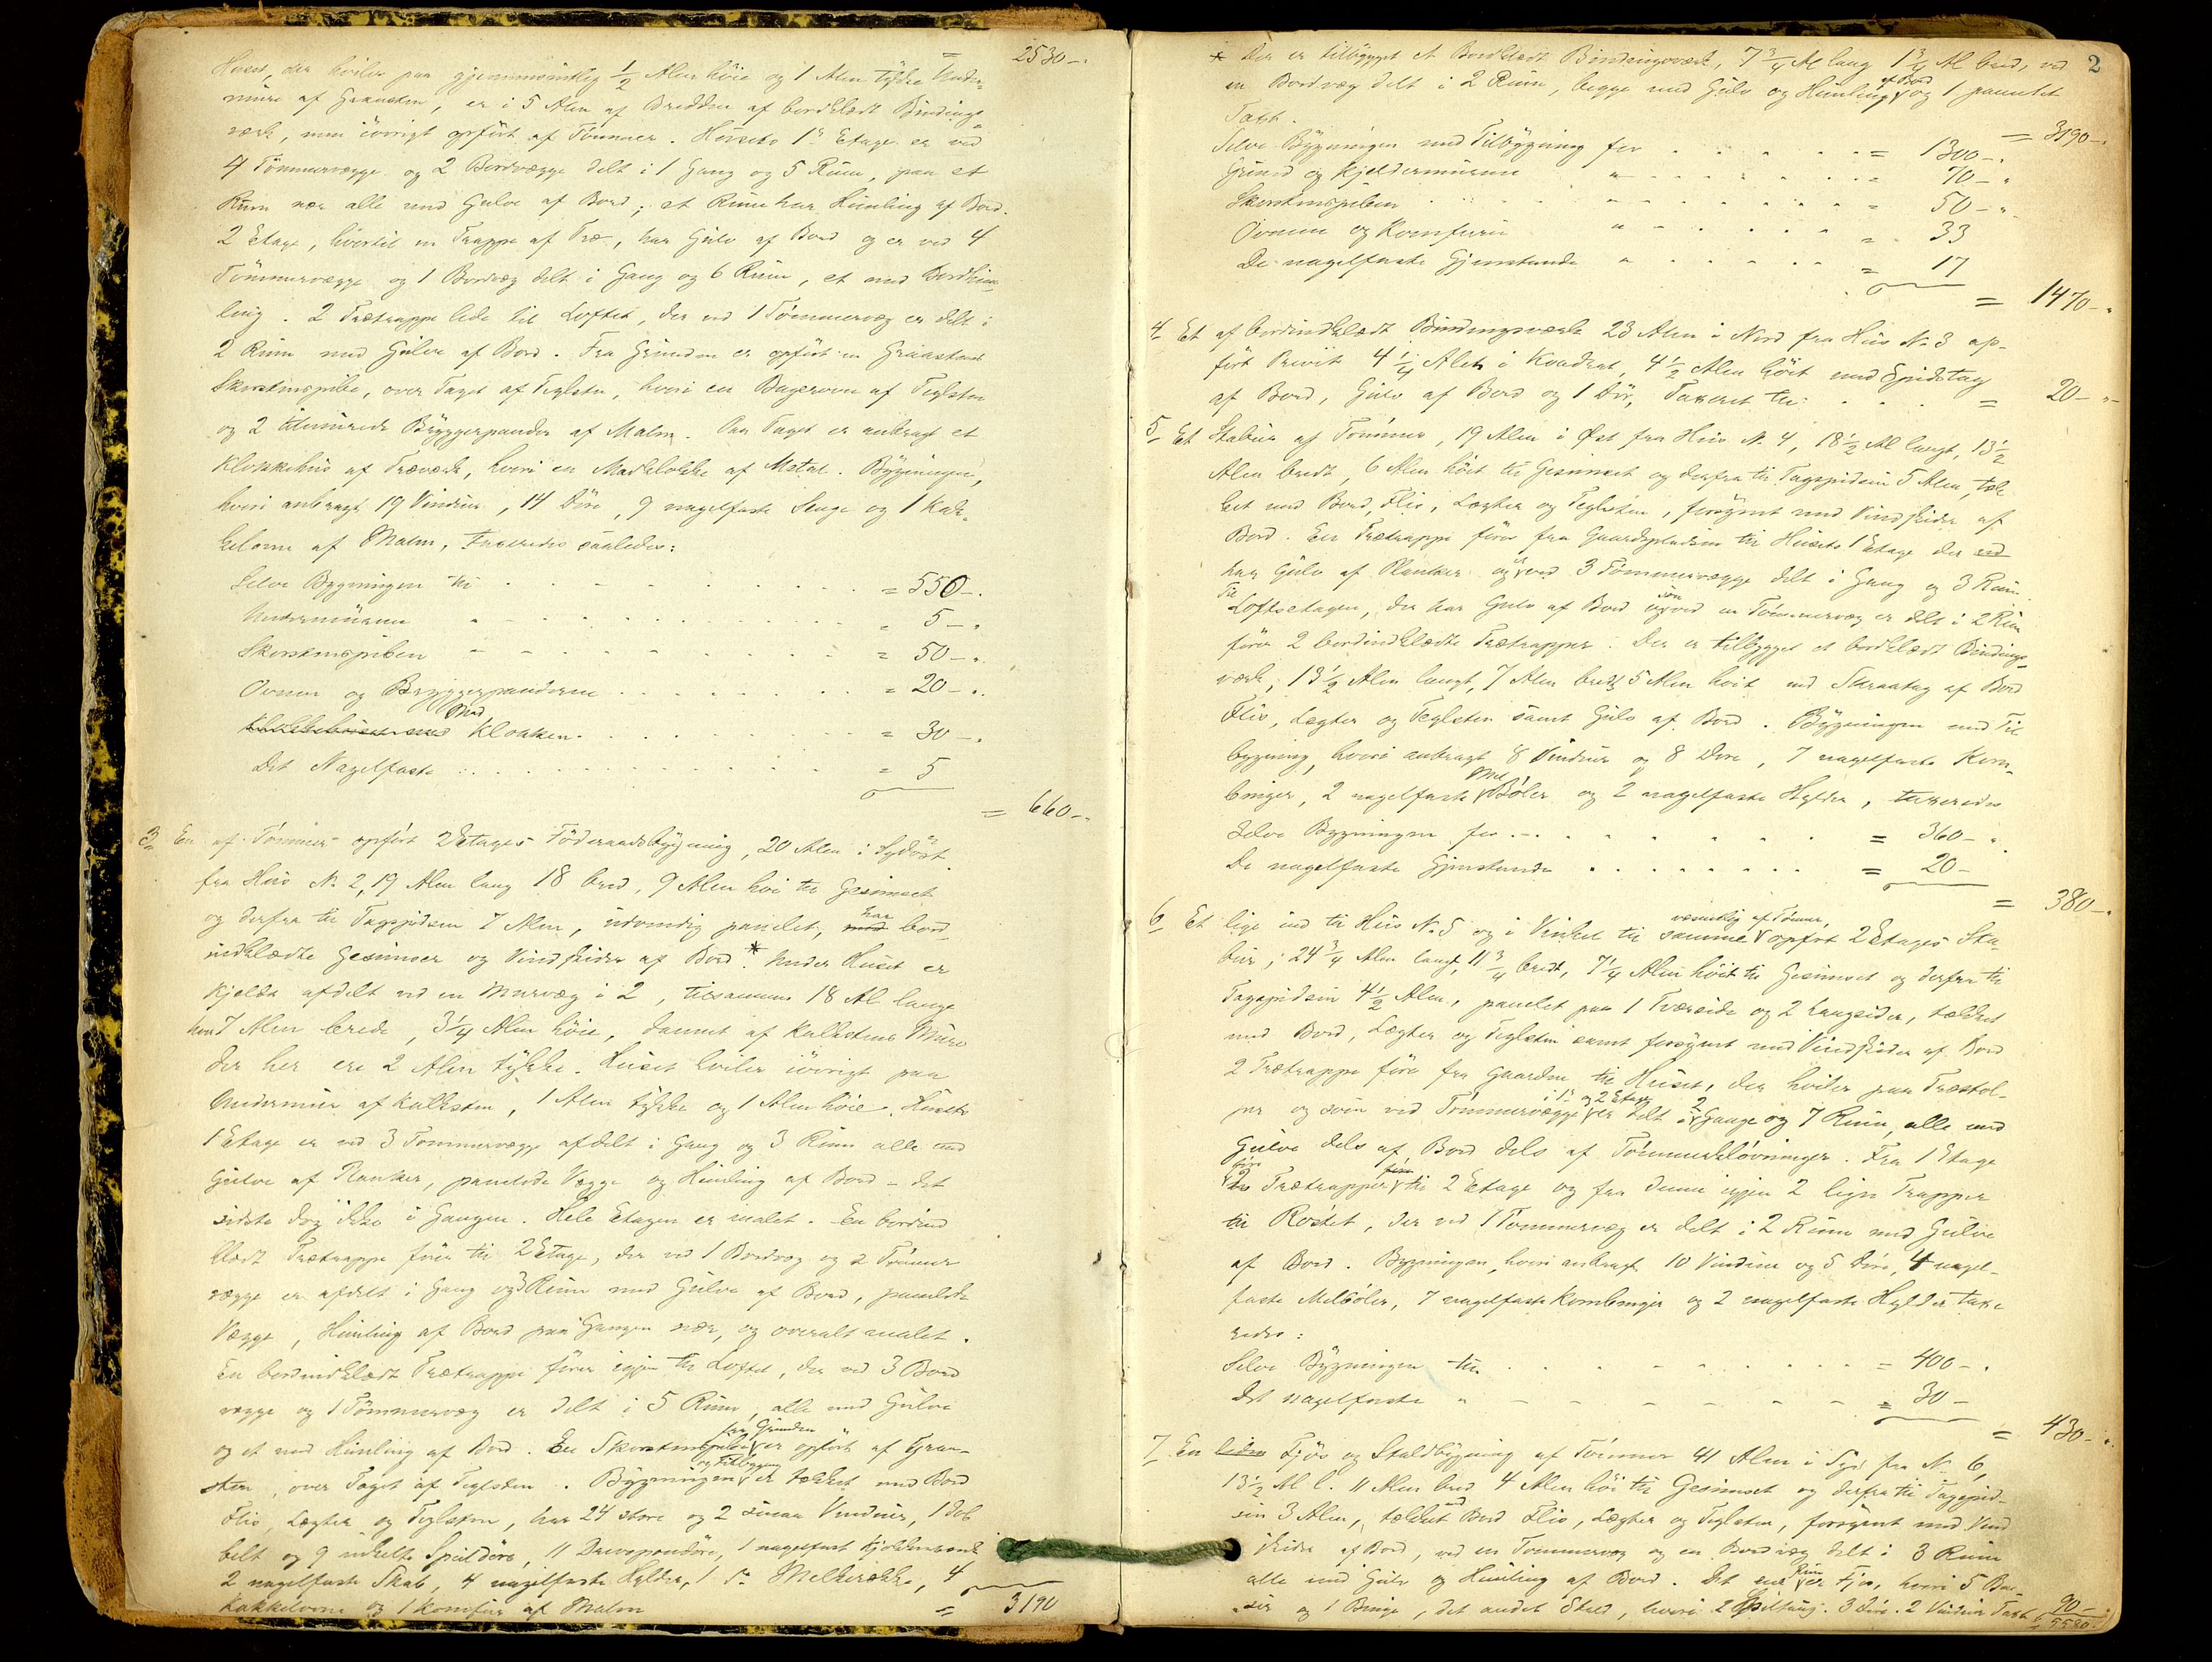 = 2530-.
Huset, der hviler paa gjennemsnitlig 1/2 Alen höie og 1 Alen tykke Under-
mure af Graasten, er i 5 Alen af Bredden af bordklædt Bindings-
værk, men iövrigt opfört af Tömmer. Husets 1ste Etage er ved
4 Tömmervægge og 2 Bordvægge delt i 1 Gang og 5 Rum, paa et
Rum nær alle med Gulve af Bord; et Rum har Himling af Bord.
2 Etage, hvortil en Trappe af Træ, har Gulv af Bord og er ved 4
Tömmervægge og 1 Bordvæg delt i Gang og 6 Rum, et med Bordhim-
ling. 2 Trætrappe lede til Loftet, der ved 1 Tömmervæg er delt i
2 Rum med Gulve af Bord. Fra Grunden er opfört en Graastens
Skorstenspibe, over Taget af Teglsten, hvori en Bagerovn af Teglsten
og 2 indmurede Bryggerpander af Malm. Paa Taget er anbragt et
Klokkehus af Træværk, hvori en Madklokke af Metal. Bygningen,
hvori anbragt 19 Vinduer, 14 Döre, 9 nagelfaste Senge og 1 Kak-
kelovn af Malm, taxeredes saaledes:
Selve Bygningen til = 550-.
Undermurene " = 5-.
Skorstenspiben - = 50-.
Ovnen og Bryggerpanderne = 20-.
Klokkehuset med Mad Klokken = 30-.
Det Nagelfaste = 5
= 660-.
3 En af Tömmer opfört 2 Etages Föderaadsbygning, 20 Alen i Sydöst
fra Hus No 2, 19 Alen lang 18 bred, 9 Alen höi til Gesimset
og derfra til Tagspidsen 7 Alen, udvendig panelet, med har bord-
indklædte Gesimser og Vindskider af Bord.* Under Huset er
Kjelder afdelt ved en Murvæg i 2, tilsammen 18 Al. lange
7 Alen brede, 3 1/4 Alen höie, dannet af Kalkstens Mure
der her ere 2 Alen tykke. Huset hviler iövrigt paa
Undermur af Kalksten, 1 Alen tykke og 1 Alen höie. Husets
1 Etage er ved 3 Tömmervægge afdelt i Gang og 3 Rum alle med
Gulve af Planker, panelede Vægge og Himling af Bord - det
sidste dog ikke i Gangen. Hele Etagen er malet. En bordind
klædt Trætrappe förer til 2 Etage, der ved 1 Bordvæg og 2 Tömmer
vægge er afdelt i Gang og 3 Rum med Gulve af Bord, panelede
Vægge, Himling af Bord paa Gangen nær, og overalt malet.
En bordindklædt Trætrappe förer igjen til Loftet, der ved 3 Bord
vægge og 1 Tömmervæg er delt i 5 Rum, alle med Gulve
og et med Himling af Bord. En Skorstenspibe fra Grunden er opfört af Graa-
sten, over Taget af Teglsten. Bygningen og Tilbygning er tækket med Bord
Flis, Lægter og Teglsten, har 24 store og 2 smaa Vinduer, 1 dob
belt og 9 enkelte Speildöre, 11 Döre, 1 nagelfast
2 nagelfaste Skab, 4 nagelfaste Hylder, 1 do Melkerække, 4
Kakkelovne og 1 Komfur af Malm = 3190
2
* Der er tilbygget et Bordklædt Bindingsværk, 7 3/4 Al lang 1 3/4 Al bred, ved
en Bordvæg delt i 2 Rum, begge med Gulv og Himling af Bord og 1 panelet
Taxt.
= 3190-.
Selve Bygningen med Tilbygning for = 1300-.
Grund og Kjeldermurene " = 70-.
Skorstenspiben " = 50-.
Ovnene og Komfuren " = 33
De nagelfaste Gjenstande " = 17
= 1470-.
4 Et af bordindklædt Bindingsværk 23 Alen i Nord fra Hus No 3 op-
fört Privét 4 1/4 Alen i Kvadrat, 4 1/2 Alen höit med Spidstag
af Bord, Gulv af Bord og 1 Dör, Taxeret til = 20-.
5 Et Stabur af Tömmer, 19 Alen i Öst fra Hus No 4, 18 1/2 Al langt, 13 1/2
Alen bredt, 6 Alen höit til Gesimset og derfra til Tagspidsen 5 Alen, tæk
ket med Bord, Flis, Lægter og Teglsten, forsynet med Vindskider af
Bord. En Trætrappe förer fra Gaardspladsen til Husets 1 Etage der ved
har Gulv af Planker og er ved 3 Tömmervægge delt i Gang og 3 Rum.
Til Loftsetagen, der har Gulv af Bord og som ved en Tömmervæg er delt i 2 Rum
förer 2 bordindklædte Trætrapper. Der er tilbygget et bordklædt Bindings-
værk, 13 1/2 Alen langt, 7 Alen bredt 5 Alen höit med Skraatag af Bord
Flis, Lægter og Teglsten samt Gulv af Bord. Bygningen med Til
bygning, hvori anbragt 8 Vinduer og 8 Döre, 7 nagelfaste Korn-
binger, 2 nagelfaste Mel Böler og 2 nagelfaste Hylder, taxeredes
Selve Bygningen for = 360-.
De nagelfaste Gjenstande = 20-
= 380-.
6 Et lige ind til Hus No 5 og i Vinkel til samme væsentlig af Tömmer opfört 2 Etages Sta-
bur, 24 3/4 Alen langt, 11 3/4 bredt, 7 1/4 Alen höit til Gesimset og derfra til
Tagspidsen 4 1/2 Alen, panelet paa 1 Tværside og 2 Langsider, tækket
med Bord, Lægter og Teglsten samt forsynet med Vindskider af Bord
2 Trætrappe före fra Gaarden til Huset, der hviler paa Træstol-
per og som ved Tömmervægge i 1ste og 2 Etage er delt i 2 Gange og 7 Rum, alle med
Gulve dels af Bord dels af Tömmerklövninger. Fra 1 Etage
före 2 Trætrapper före til 2 Etage og fra denne igjen 2 lign Trapper
til Röstet, der ved 1 Tömmervæg er delt i 2 Rum med Gulve
af Bord. Bygningen, hvori anbragt 10 Vinduer og 5 Döre, 4 nagel-
faste Melböler, 7 nagelfaste Kornbinger og 2 nagelfaste Hylder taxe
redes:
Selve Bygningen til = 400-.
Det nagelfaste " = 30-
= 430-.
7 En Fjös og Staldbygning af Tömmer 41 Alen i Syd fra No 6,
13 1/2 Al l. 11 Alen bred 4 Alen höi til Gesimset og derfra til Tagspid-
sen 3 Alen, tækket med Bord Flis, Lægter og Teglsten, forsynet med Vind
skider af Bord, ved en Tömmervæg og en Bordvæg delt i 3 Rum
alle med Gulv og Himling af Bord. Det ene Rum er Fjös, hvori 5 Baa-
ser og 1 Binge, det andet Stald, hvori 2 Spiltaug. 3 Döre. 2 Vinduer Taxt 90-
5580.